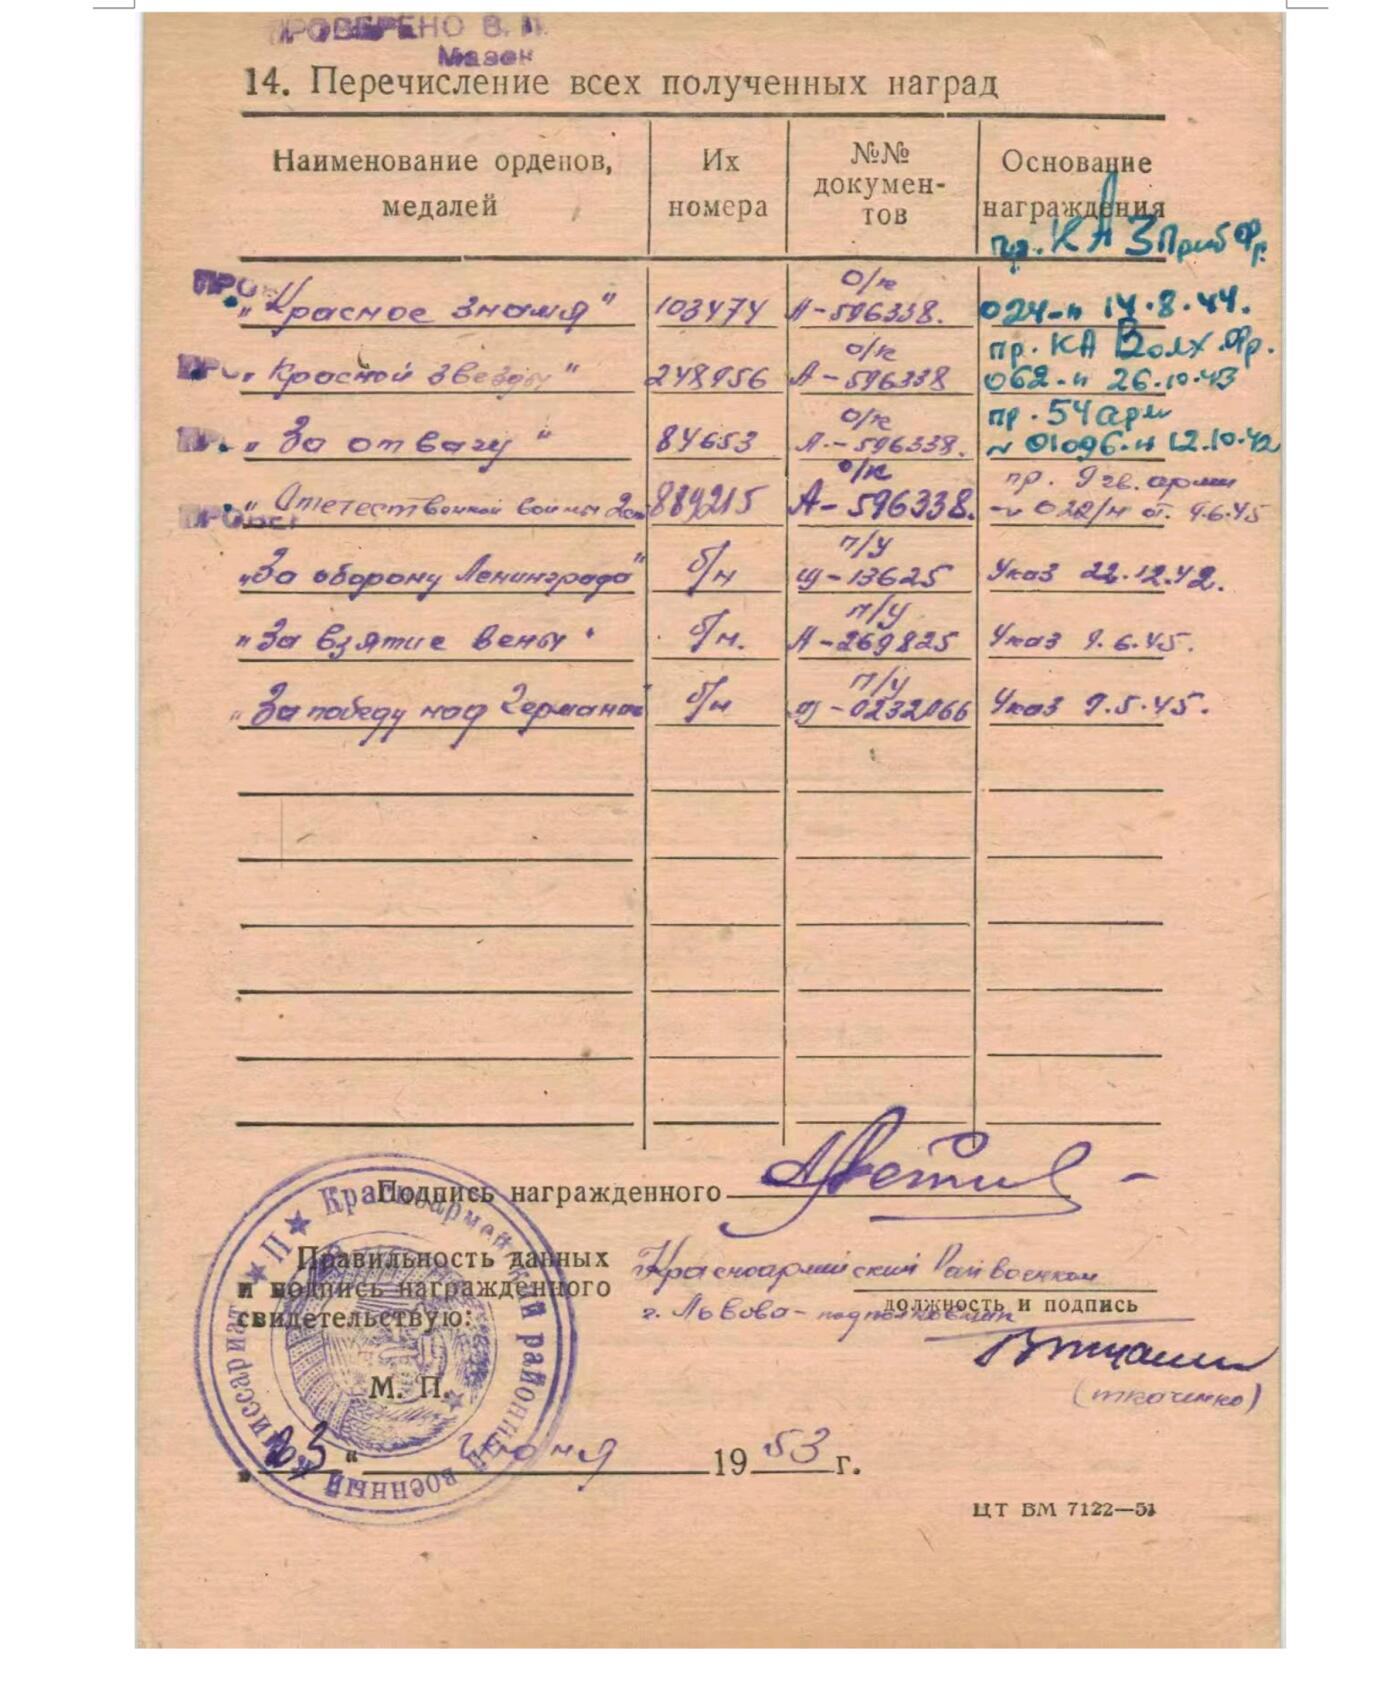 ПРОВЕРЕНО В. П.
Мазен
14. Перечисление всех полученных наград
Наименование орденов, медалей
Их номера
№№ докумен-тов
Основание награждения
пр. КА 3 Приб Фр.
"Красное знамя" 103474 о/к А-596338. 024-н 14.8.44.
"Красной звезды" 248956 о/к А-596338 пр. КА Волх. Фр. 062-н 26.10.43
"За отвагу" 84653 о/к А-596338. пр. 54 арм № 01096-н 12.10.42
"Отечественной войны 2 ст 889215 о/к А-596338. пр. 9 гв. армии № 022/н от 9.6.45
"За оборону Ленинграда" б/н п/у -13625 Указ 22.12.42.
"За взятие вены" б/н. п/у А-269825 Указ 9.6.45.
"За победу над Германией б/н п/у -0232066 Указ 9.5.45.
Подпись награжденного
Правильность данных
и подпись награжденного
свидетельствую:
Красноармейский Райвоенком
должность и подпись
г. Львова - подполковник
(ткаченко)
М. П.
"03" июня 1953 г.
★ Красноармейский районный военный комиссариат ★
ЦТ ВМ 7122—51